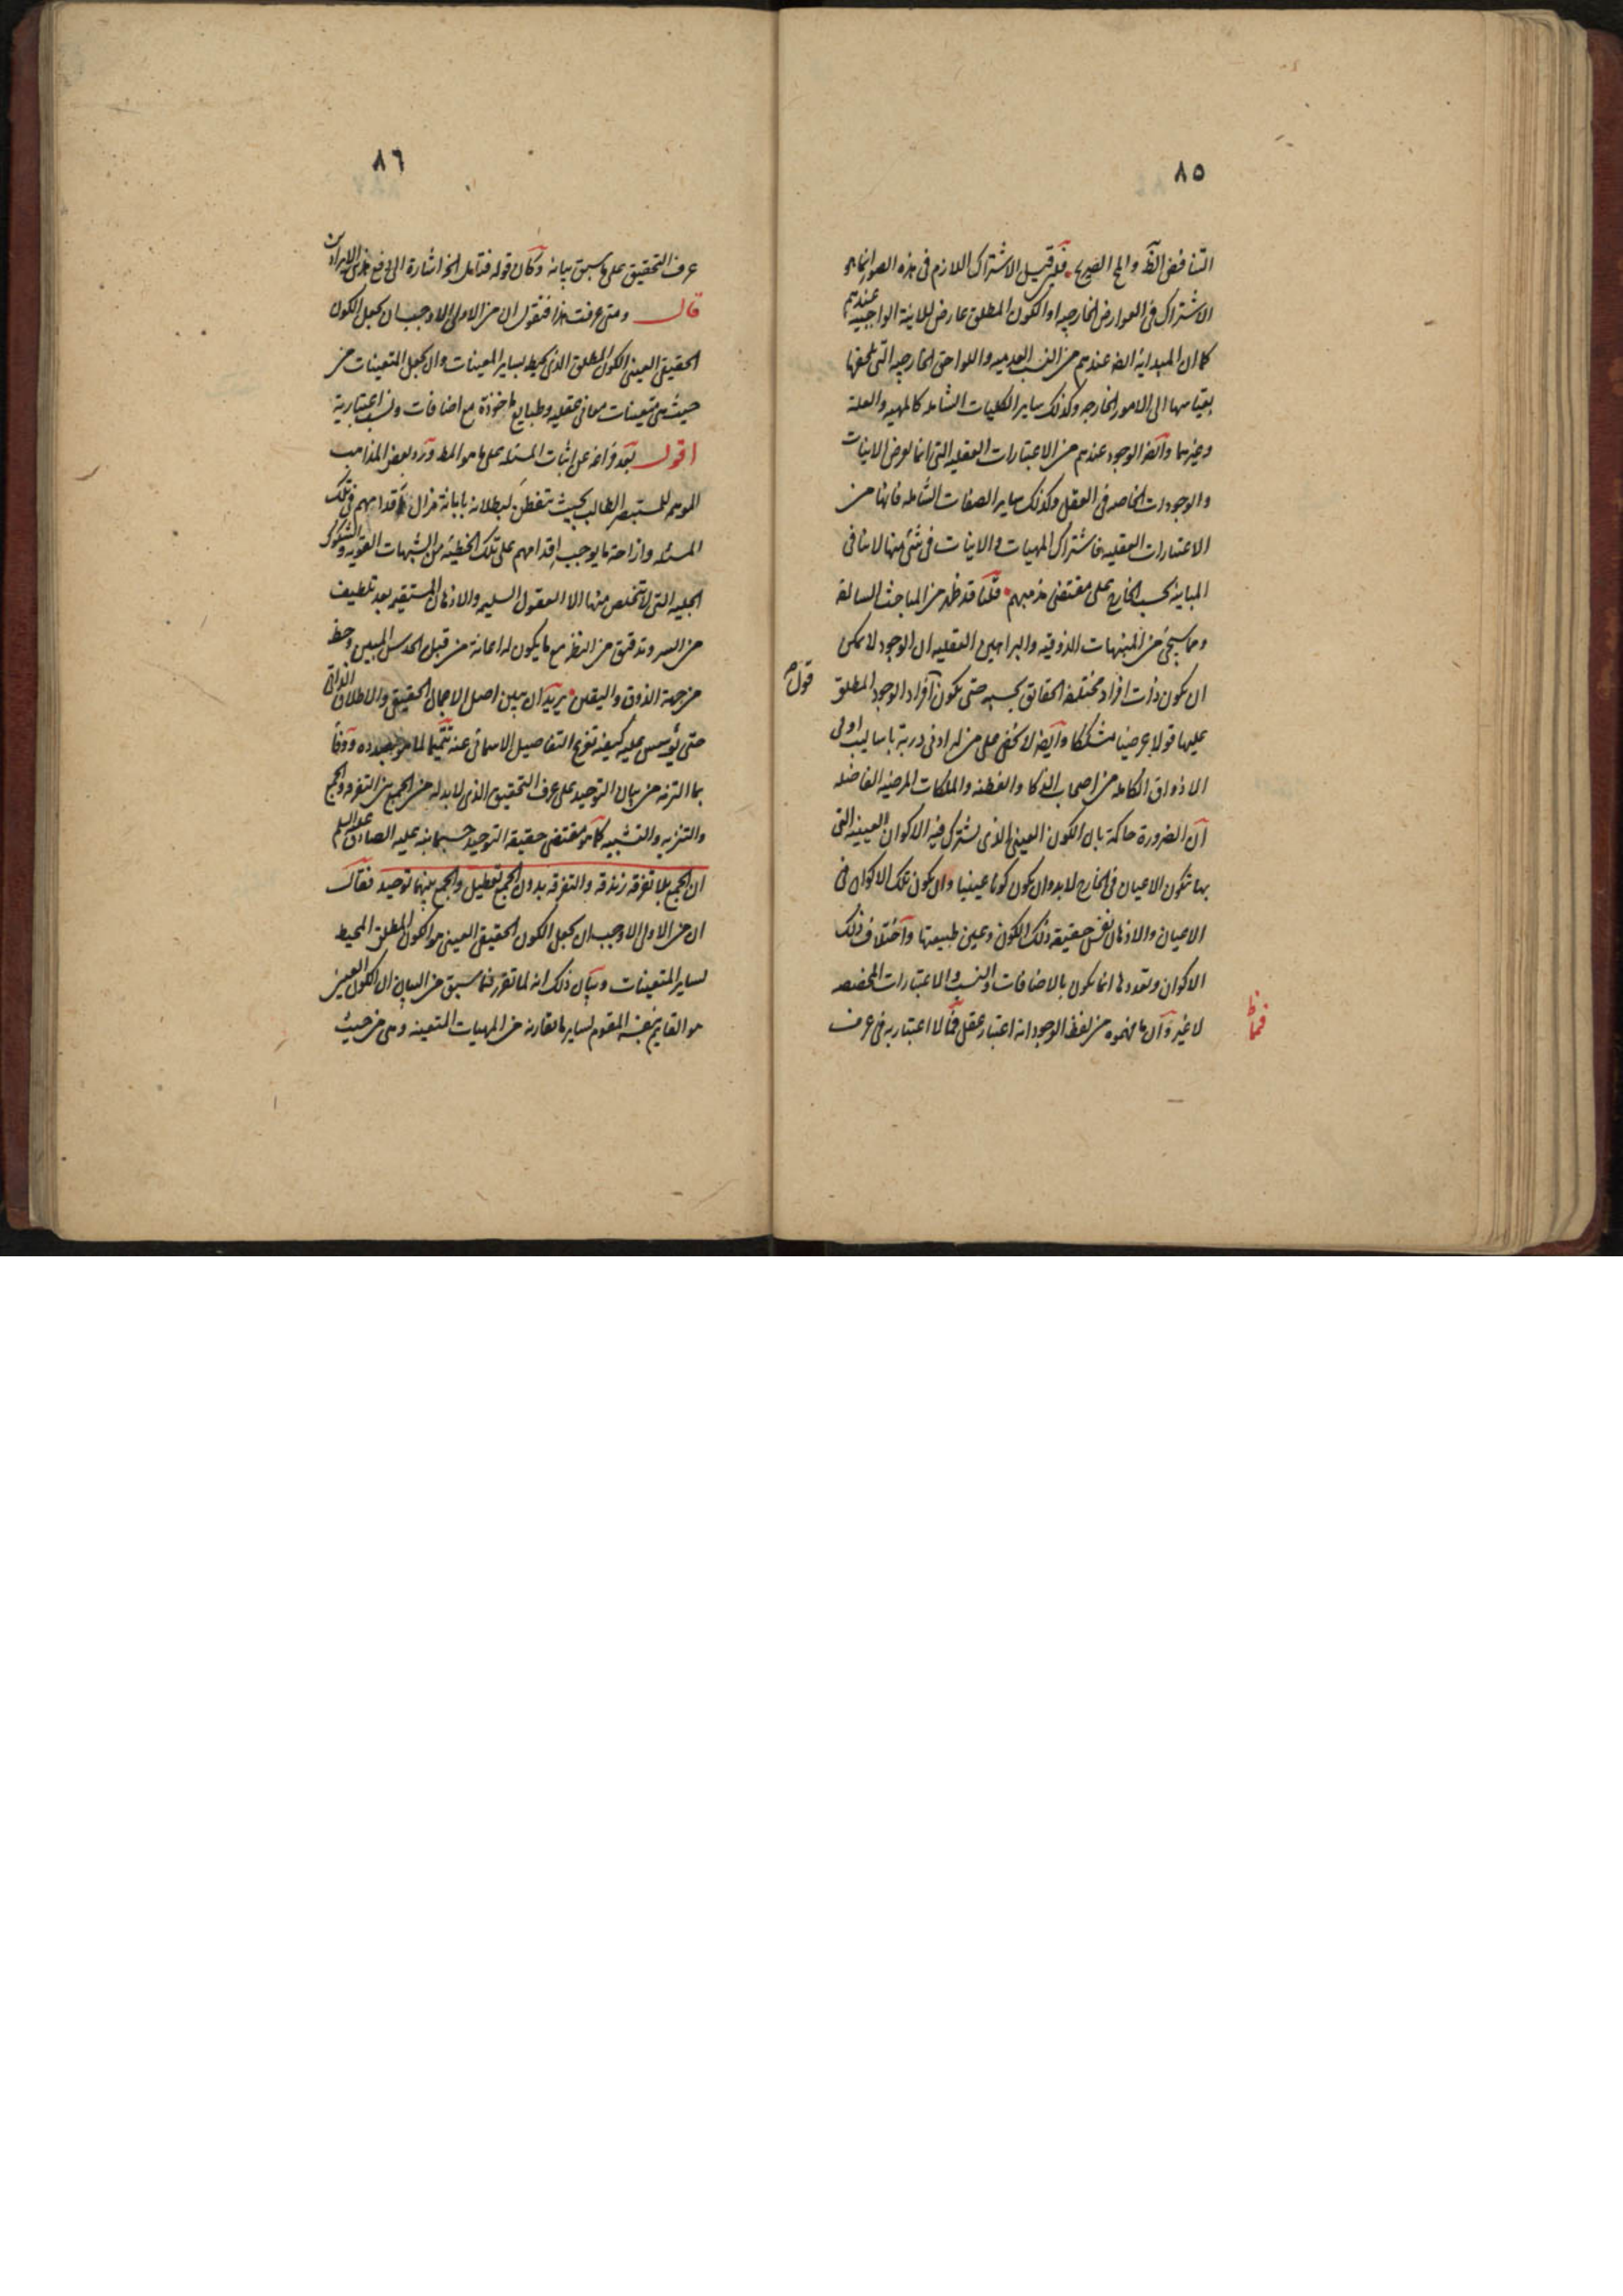 ٨٥
التناقض الظ والمح الصريح فلو قيل الاشتراك اللازم فى هذه الصور انما هو
الاشتراك فى العوارض الخارجيه اذ الكون المطلق عارض للاينة الواجبيه عندهم
كما ان المبدائيه ايضا عندهم من النسب العدميه واللواحق الخارجيه التى تلحقها
بقياسها الى الامور الخارجه وكذلك ساير الكليات الشامله كالمهيه والعلة
وغيرهما وايضا الوجود عندهم من الاعتبارات العقليه التى انما تعرض الاينات
والوجودات الخاصه فى العقل وكذلك ساير الصفات الشامله فانها من
الاعتبارات العقليه فاشتراك المهيات والاينات فى شئ منها لا ينافى
المباينه بحسب الخارج على مقتضى مذهبهم قلنا قد ظهر من المباحث السالفة
ومما سيجئ من المنبهات الذوقيه والبراهين العقليه ان الوجود لا يمكن
ان يكون ذات افراد مختلفة الحقائق بحسبه حتى يكون افراد الوجود المطلق
قول م
عليها قولا عرضيا مشككا وايضا لا يخفى على من له ادنى دربة باساليب اولى
الاذواق الكامله من اصحاب الذكا والفطنه والملكات المرضيه الفاضله
ان الضرورة حاكمة بان الكون العينى الذى يشترك فيه الاكوان العينيه التى
بها تكون الاعيان فى الخارج لابد وان يكون كونا عينيا وان يكون تلك الاكوان فى
الاعيان والاذهان نفس حقيقة ذلك الكون وعين طبيعتها واختلاف ذلك
الاكوان وتعددها انما يكون بالاضافات والنسب والاعتبارات المخصصه
لا غير وان ما فهموه من لفظ الوجود انه اعتبار عقلى فما لا اعتبار به فى عرف
فمما ظ
٨٦
عرف التحقيق على ما سبق بيانه وكان قوله فتامل الخ اشارة الى دفع هذين الايرادين
قال ومتى عرفت هذا فنقول ان من الاولى الاوجب ان يجعل الكون
الحقيقى العينى الكون المطلق الذى يحيط بساير المعينات وان يجعل المتعينات من
حيث هى متعينات معانى عقليه وطبايع ماخوذة مع اضافات ونسب اعتبارية
اقول بعد فراغه عن اثبات المسئله على ما هو المط ورد بعض المذاهب
الموهم للمستبصر الطالب بحيث يتفطن لبطلانه بابانة مزال اقدامهم فى تلك
المسئله وازاحة ما يوجب اقدامهم على تلك الخطيئه من الشبهات القويه والشكوك
الجليه التى لا تتخلص منها الا العقول السليمه والاذهان المستقيمه بعد تلطيف
من السر وتدقيق من النظر مع ما يكون له اعانة من قبل الحدس المبين وحظ
من جهة الذوق واليقين يريد ان يبين اصل الاجمالى الحقيقى والاطلاق الذاتى
حتى يؤسس عليه كيفية تفريع التفاصيل الاسمائى عنه تتميما لما هو بصدده ووفا
بما التزمه من بيان التوحيد على عرف التحقيق الذى لابد له من الجمع بين التفرقه والجمع
والتنزيه والتشبيه كما هو مقتضى حقيقة التوحيد حسبما نبه عليه الصادق عليه السلم
ان الجمع بلا تفرقه زندقه والتفرقه بدون الجمع تعطيل والجمع بينهما توحيد فقال
ان من الاولى الاوجب ان يجعل الكون الحقيقى العينى هو الكون المطلق المحيط
لساير المتعينات وبيان ذلك انه لما تقرر فيما سبق من البيان ان الكون العينى
هو القايم بنفسه المقوم لساير ما يقارنه من المهيات المتعينه وهى من حيث